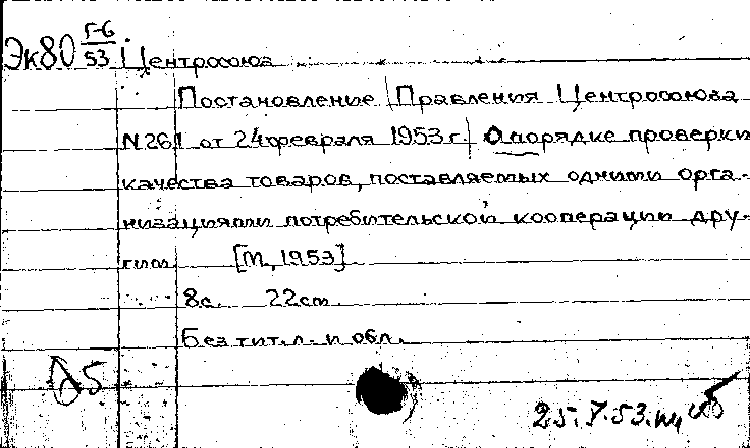 Эк80 Г-6/53 Центросоюз
Постановление Правления Центросоюза
N261 от 24 февраля 1953 г. О порядке проверки
качества товаров, поставляемых одними орга-
низациями потребительской кооперации дру-
гим [М, 1953]
8с. 22см.
Без тит. л. и обл.
25
25.V.53.